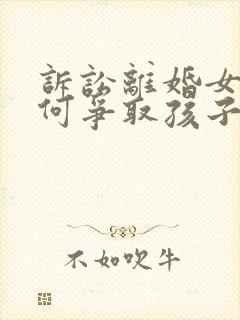 訴訟離婚女
何爭取孩子
不如吹牛